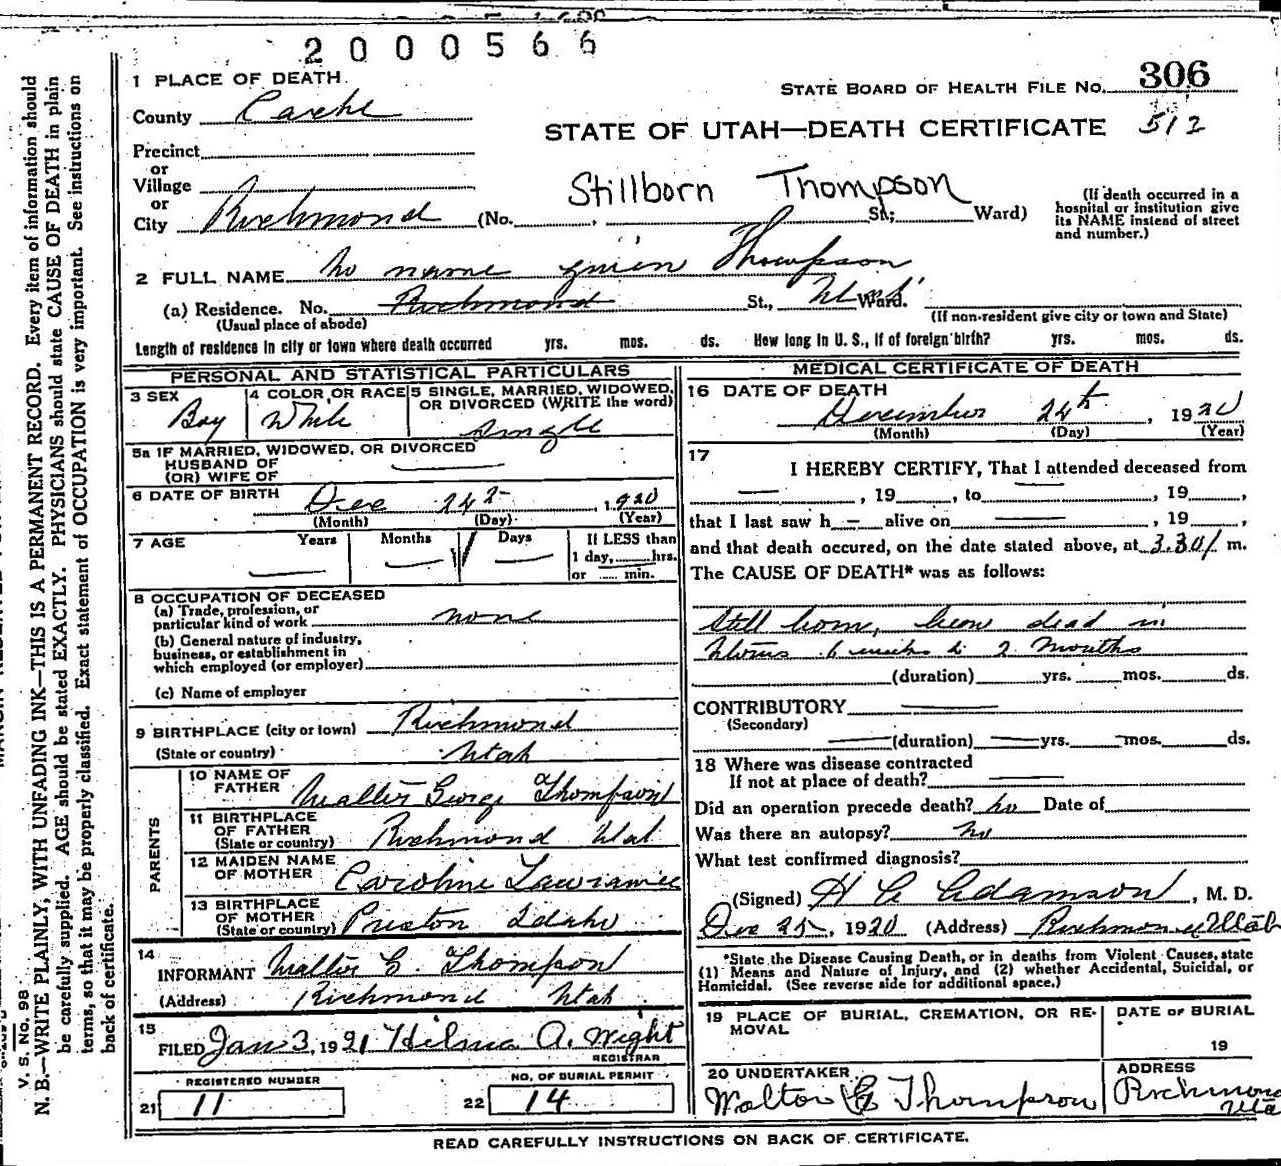 2000566
1 PLACE OF DEATH
STATE BOARD OF HEALTH FILE NO. 306
County Cache
STATE OF UTAH—DEATH CERTIFICATE 512
Precinct
or
Village
or
City Richmond (No. St; Ward)
Stillborn Thompson
(If death occurred in a
hospital or institution give
its NAME instead of street
and number.)
2 FULL NAME no name given Thompson
(a) Residence. No. Richmond St., Utah Ward.
(Usual place of abode)
(If non-resident give city or town and State)
Length of residence in city or town where death occurred yrs. mos. ds. How long in U. S., if of foreign birth? yrs. mos. ds.
PERSONAL AND STATISTICAL PARTICULARS
3 SEX Boy
4 COLOR OR RACE White
5 SINGLE, MARRIED, WIDOWED,
OR DIVORCED (WRITE the word)
Single
5a IF MARRIED, WIDOWED, OR DIVORCED
HUSBAND OF
(OR) WIFE OF
6 DATE OF BIRTH Dec 24 1920
(Month) (Day) (Year)
7 AGE Years Months Days If LESS than
1 day, hrs.
or min.
8 OCCUPATION OF DECEASED
(a) Trade, profession, or
particular kind of work none
(b) General nature of industry,
business, or establishment in
which employed (or employer)
(c) Name of employer
9 BIRTHPLACE (city or town) Richmond
(State or country) Utah
PARENTS
10 NAME OF
FATHER Walter George Thompson
11 BIRTHPLACE
OF FATHER
(State or country) Richmond Utah
12 MAIDEN NAME
OF MOTHER Caroline
13 BIRTHPLACE
OF MOTHER
(State or country) Preston Idaho
14
INFORMANT Walter G. Thompson
(Address) Richmond Utah
15
FILED Jan 3, 1921 Hilma A. Wight
REGISTRAR
REGISTERED NUMBER
21 11
NO. OF BURIAL PERMIT
22 14
MEDICAL CERTIFICATE OF DEATH
16 DATE OF DEATH
December 24th, 1920
(Month) (Day) (Year)
17
I HEREBY CERTIFY, That I attended deceased from
, 19 , to , 19 ,
that I last saw h — alive on , 19 ,
and that death occured, on the date stated above, at 3.30 m.
The CAUSE OF DEATH* was as follows:
Still born, been dead in
Uterus 6 weeks to 2 months
(duration) yrs. mos. ds.
CONTRIBUTORY
(Secondary)
(duration) yrs. mos. ds.
18 Where was disease contracted
If not at place of death?
Did an operation precede death? no Date of
Was there an autopsy? no
What test confirmed diagnosis?
(Signed) H C Adamson, M. D.
Dec 25, 1920 (Address) Richmond Utah
*State the Disease Causing Death, or in deaths from Violent Causes, state
(1) Means and Nature of Injury, and (2) whether Accidental, Suicidal, or
Homicidal. (See reverse side for additional space.)
19 PLACE OF BURIAL, CREMATION, OR RE-
MOVAL
DATE OF BURIAL
19
20 UNDERTAKER
Walton G Thompson
ADDRESS
Richmond
Utah
READ CAREFULLY INSTRUCTIONS ON BACK OF CERTIFICATE.
V. S. No. 98
N. B.—WRITE PLAINLY, WITH UNFADING INK—THIS IS A PERMANENT RECORD. Every item of information should
be carefully supplied. AGE should be stated EXACTLY. PHYSICIANS should state CAUSE OF DEATH in plain
terms, so that it may be properly classified. Exact statement of OCCUPATION is very important. See instructions on
back of certificate.